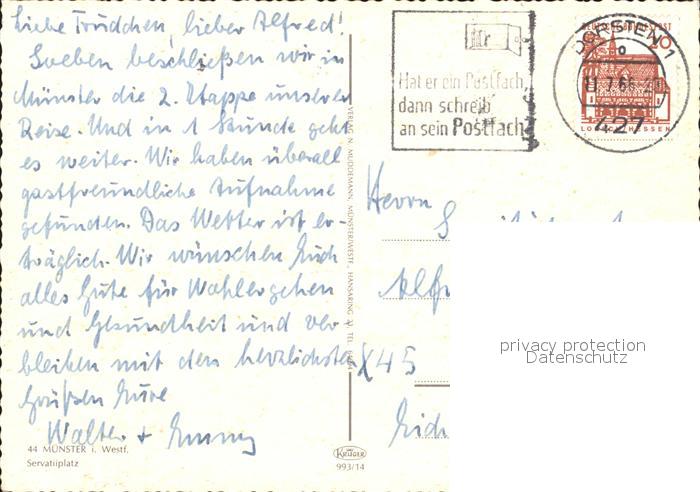 Liebe Trudchen, lieber Alfred!
Soeben beschließen wir in
Münster die 2. Etappe unserer
Reise. Und in 1 Stunde geht
es weiter. Wir haben überall
gastfreundliche Aufnahme
gefunden. Das Wetter ist er-
träglich. Wir wünschen Euch
alles Gute für Wohlergehen
und Gesundheit und ver-
bleiben mit den herzlichsten
Grüßen Eure
Walter + Emmy
44 MÜNSTER i. Westf.
Servatiiplatz
VERLAG N. MUDDEMANN, MÜNSTER/WESTF., HANSARING
KRÜGER
993/14
Hat er ein Postfach,
dann schreib'
an sein Postfach
DORSTEN 1
427
20
LORSCH HESSEN
Herrn
X 45
privacy protection
Datenschutz